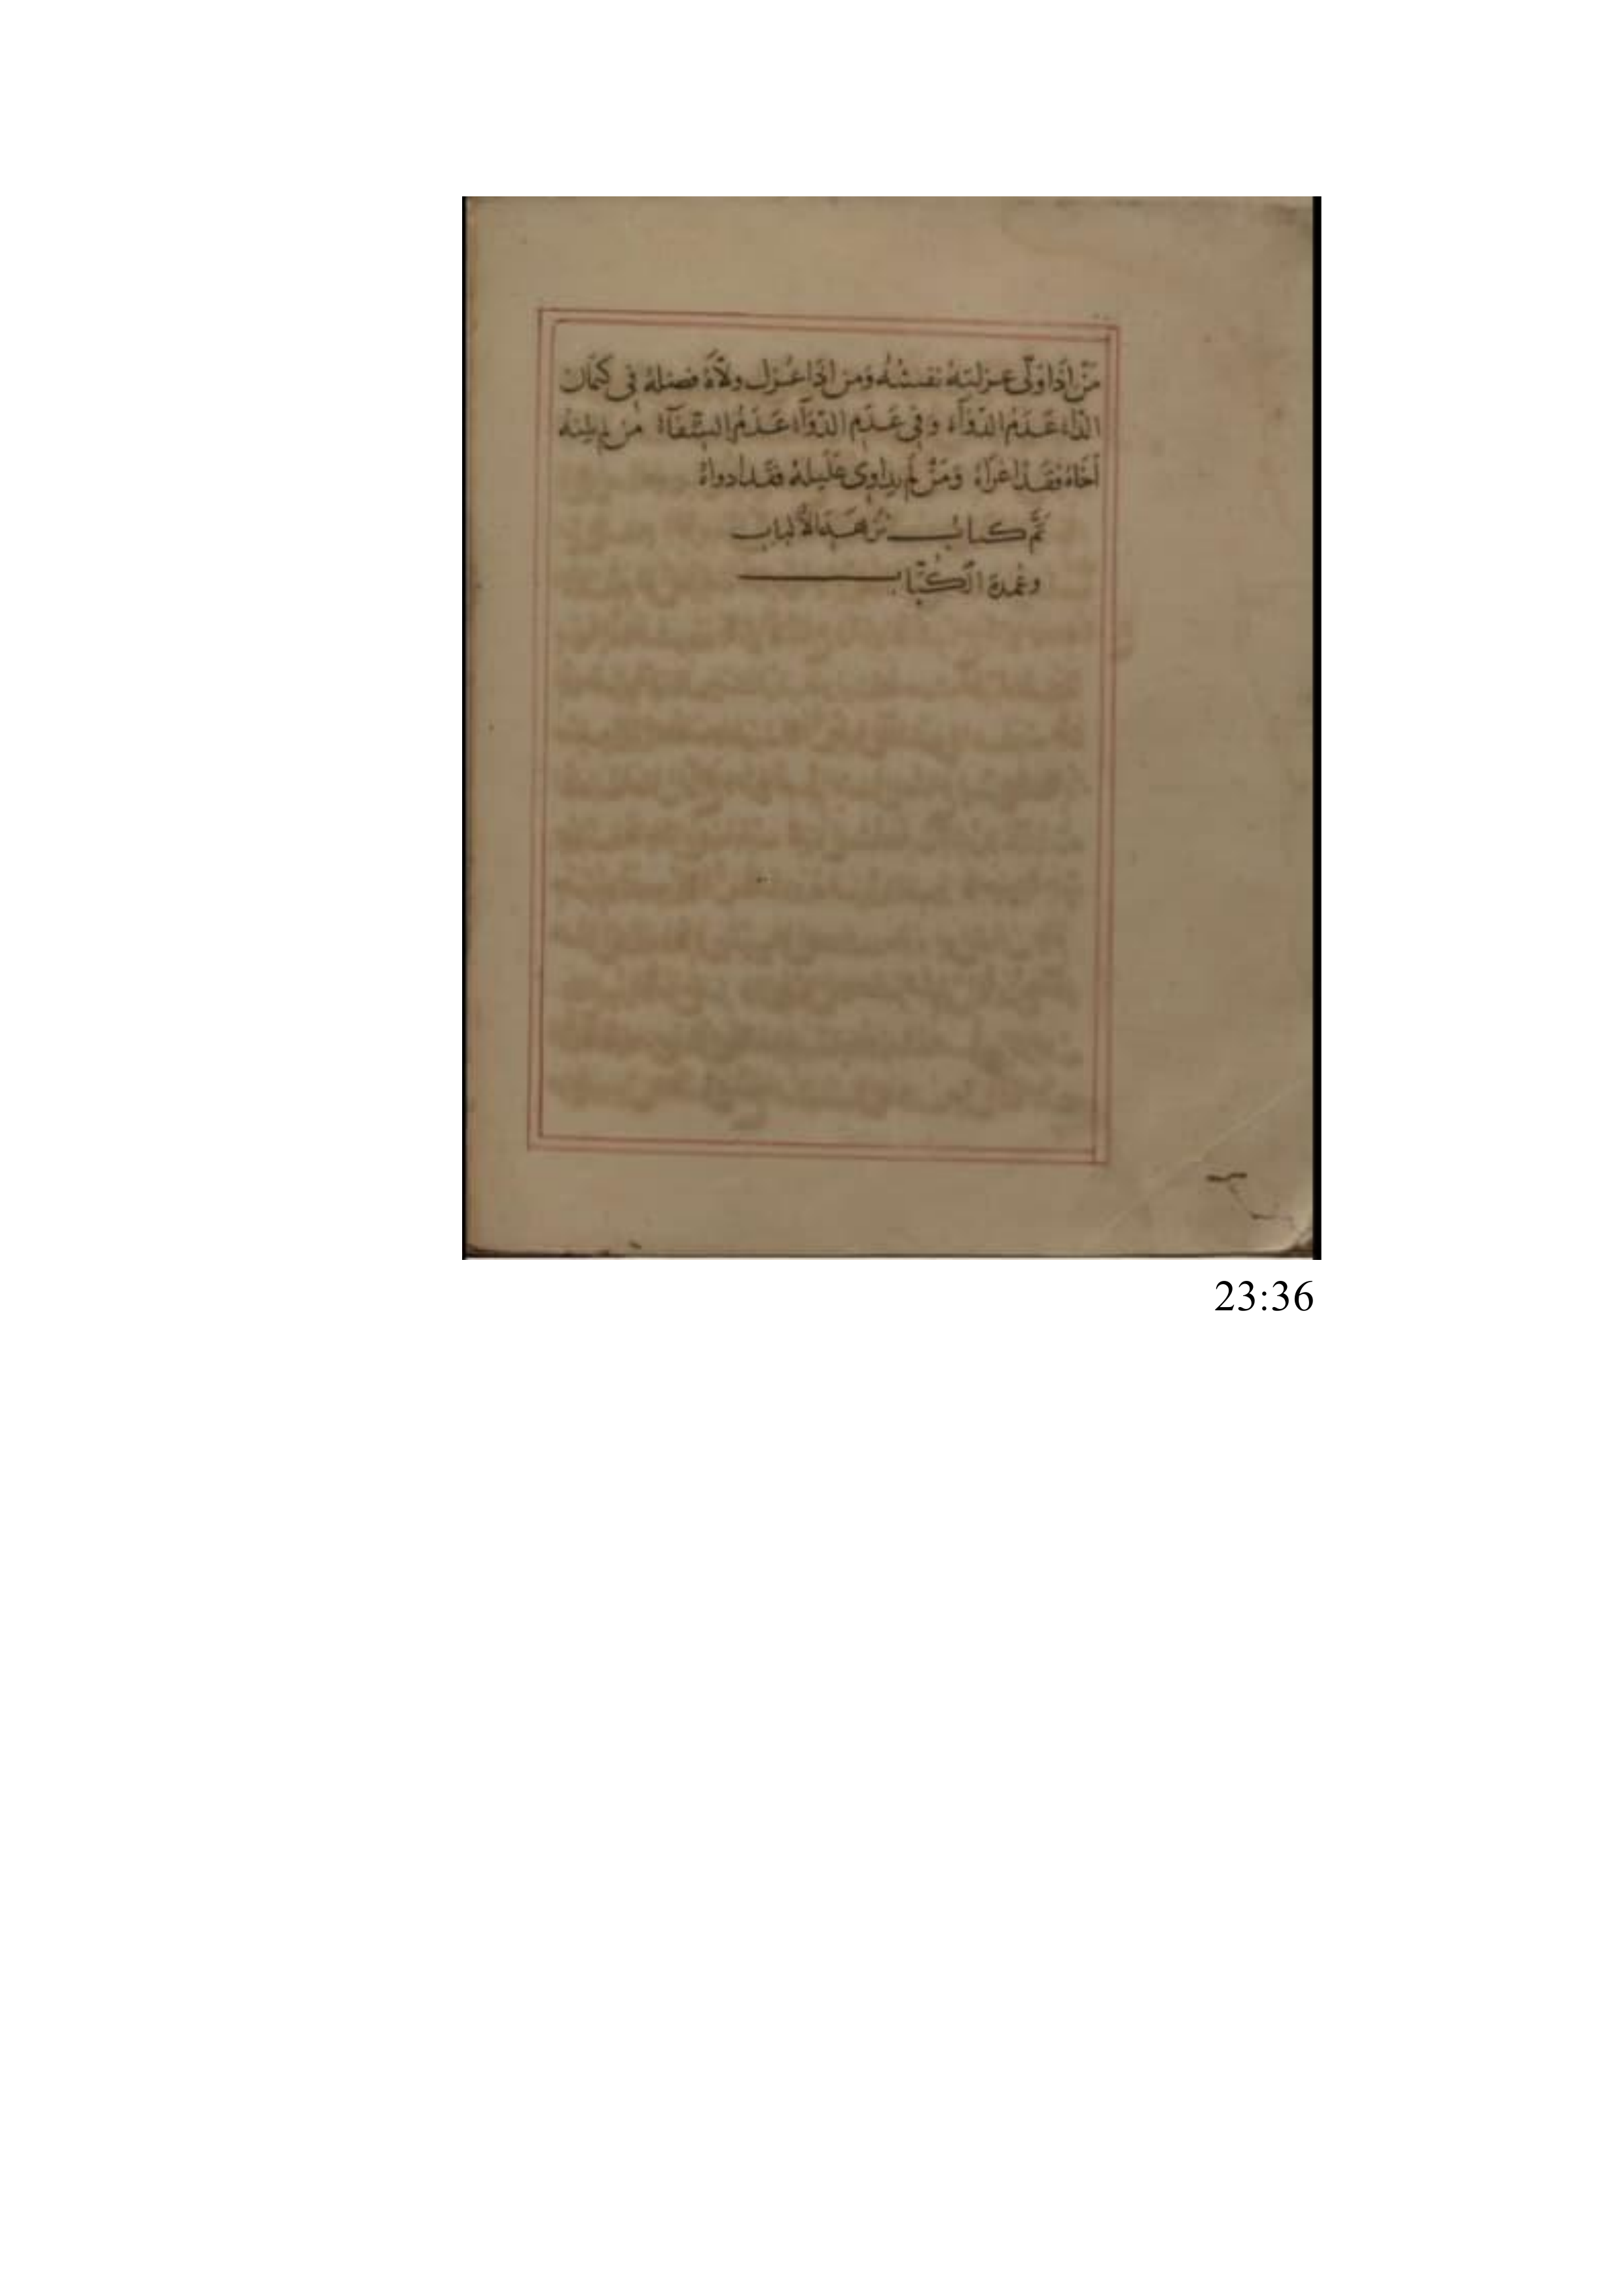 مَنْ إذَا وَلّى عزلتهُ نفسُهُ وَمن اذَا عُزل ولاّهُ فضلهُ في كتمان
الدّاء عَدَمُ الدّوَآء وَفي عَدَم الدّوَآء عَدَمُ الشفَآء من لم
أخَاهُ فقَد اغراهُ وَمَنْ لم يداوى عَليلهُ فقَد ادواهُ
تمَّ كتابُ نزهَة الألباب
وعُمدة الكُتّاب
23:36